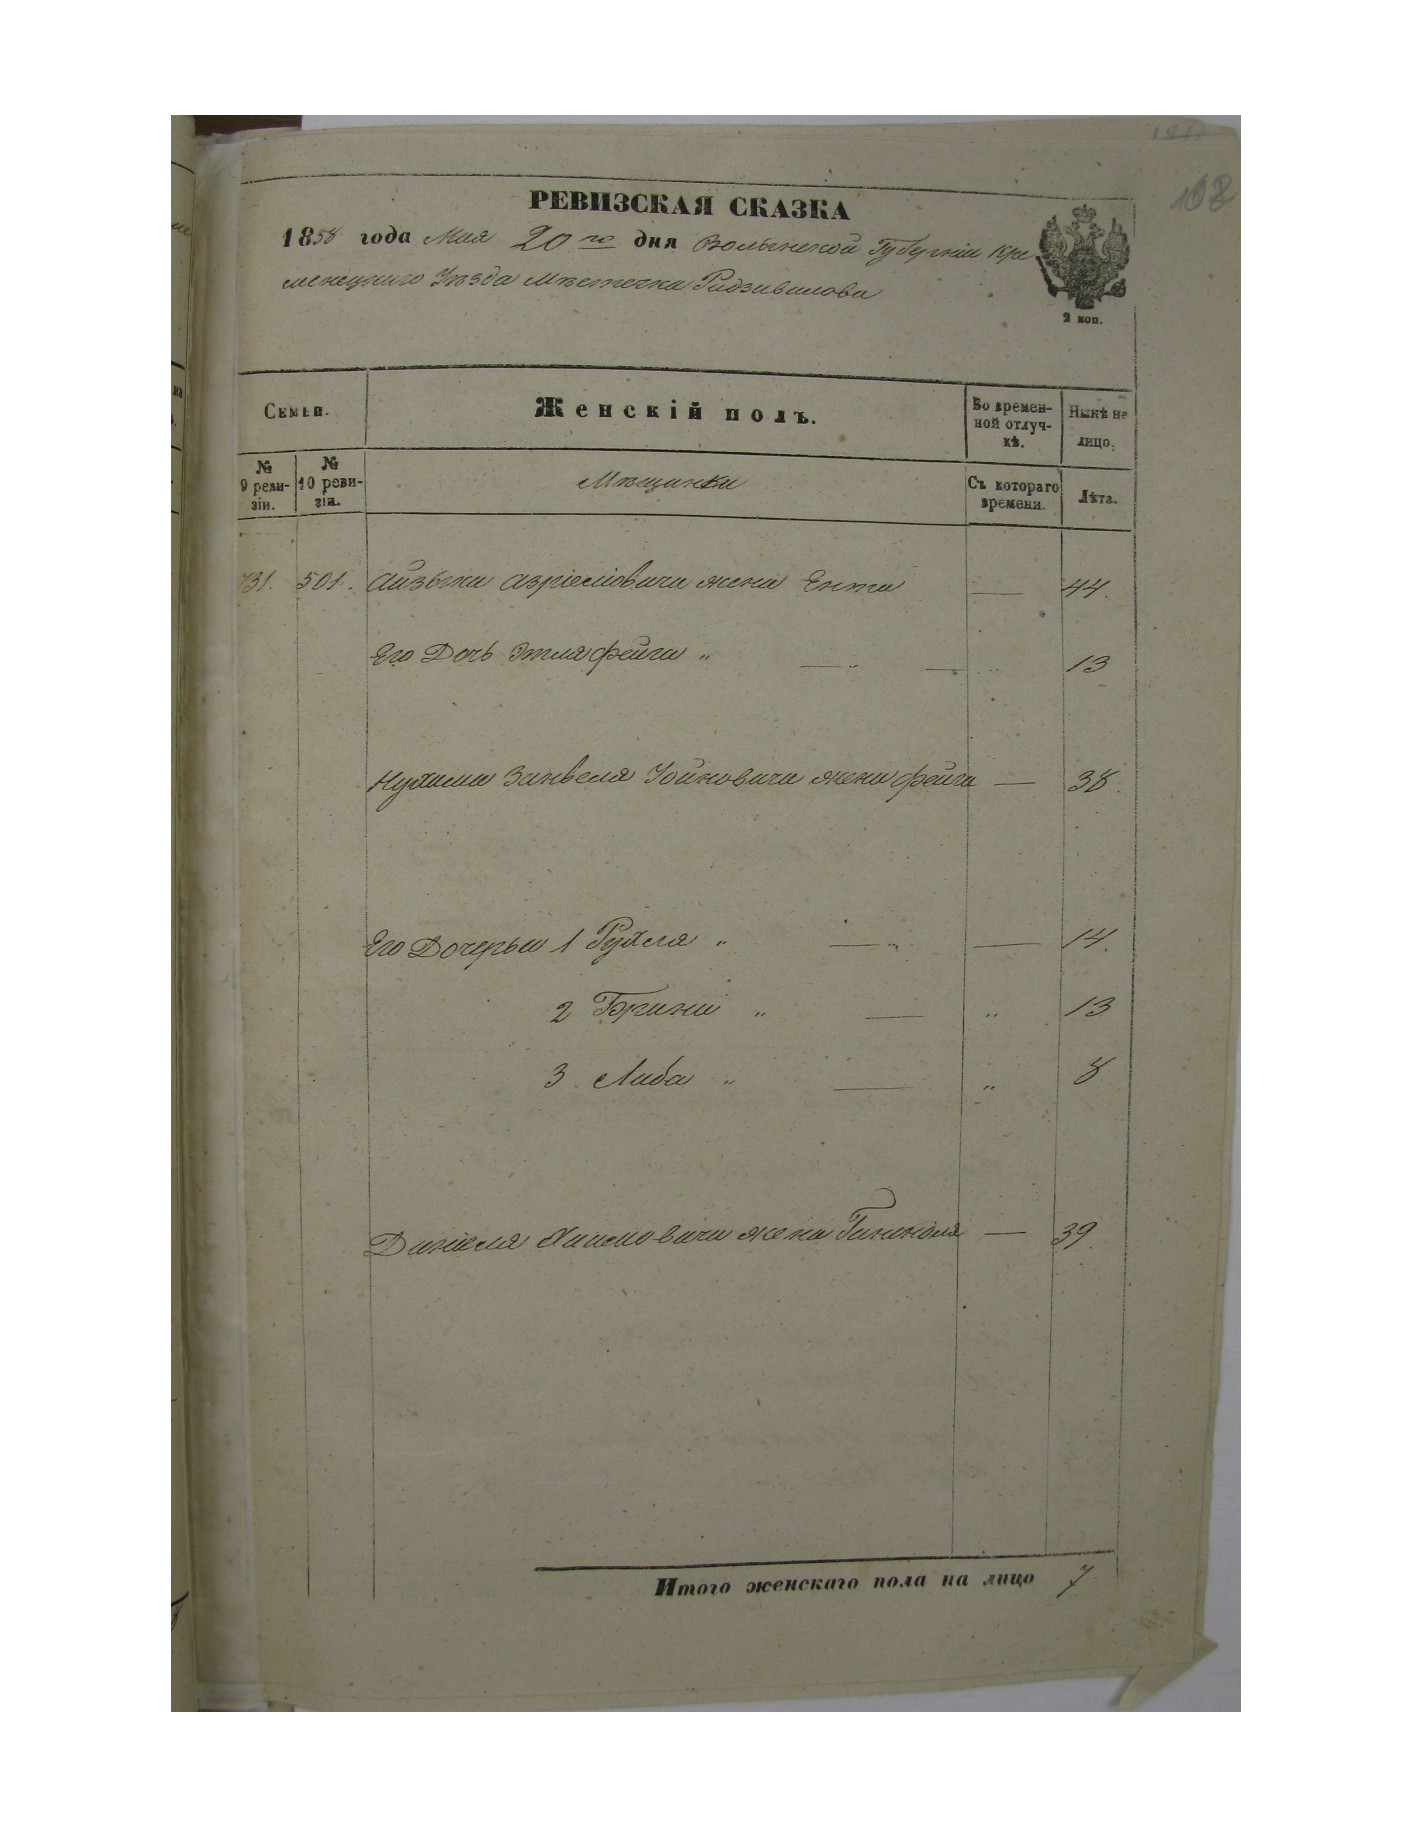 108
РЕВИЗСКАЯ СКАЗКА
1858 года Мая 20го дня Волынской Губерніи Кре
менецкаго Уѣзда Мѣстечка Радзивилова
2 коп.
Семьи. Женскій полъ. Во времен-
ной отлуч-
кѣ. Нынѣ на
лицо.
№
9 реви-
зіи. №
10 реви-
зіи. Мѣщанки Съ котораго
времени. Лѣта.
731. 501. Айзыка Азріелёвича жена Ента — 44.
Его Дочь Этля Фейга „ — „ — „ 13
Нухима Занвеля жена Фейга — 38.
Его Дочерьи 1 Рухля „ — „ — 14.
2 „ — „ 13
3 Либа „ — „ 8
Даніеля Хаимовича жена — 39
Итого женскаго пола на лицо 7